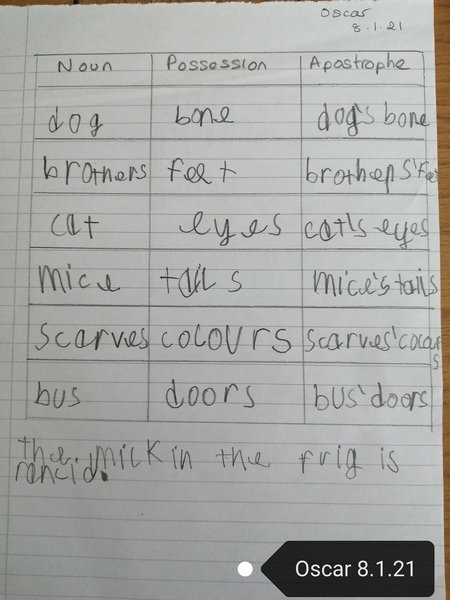 Oscar
8.1.21
Noun Possession Apostrophe
dog bone dog's bone
brothers feet brothers' feet
cat eyes cat's eyes
mice tails mice's tails
scarves colours scarves' colours
bus doors bus' doors
the milk in the frig is
rancid.
Oscar 8.1.21